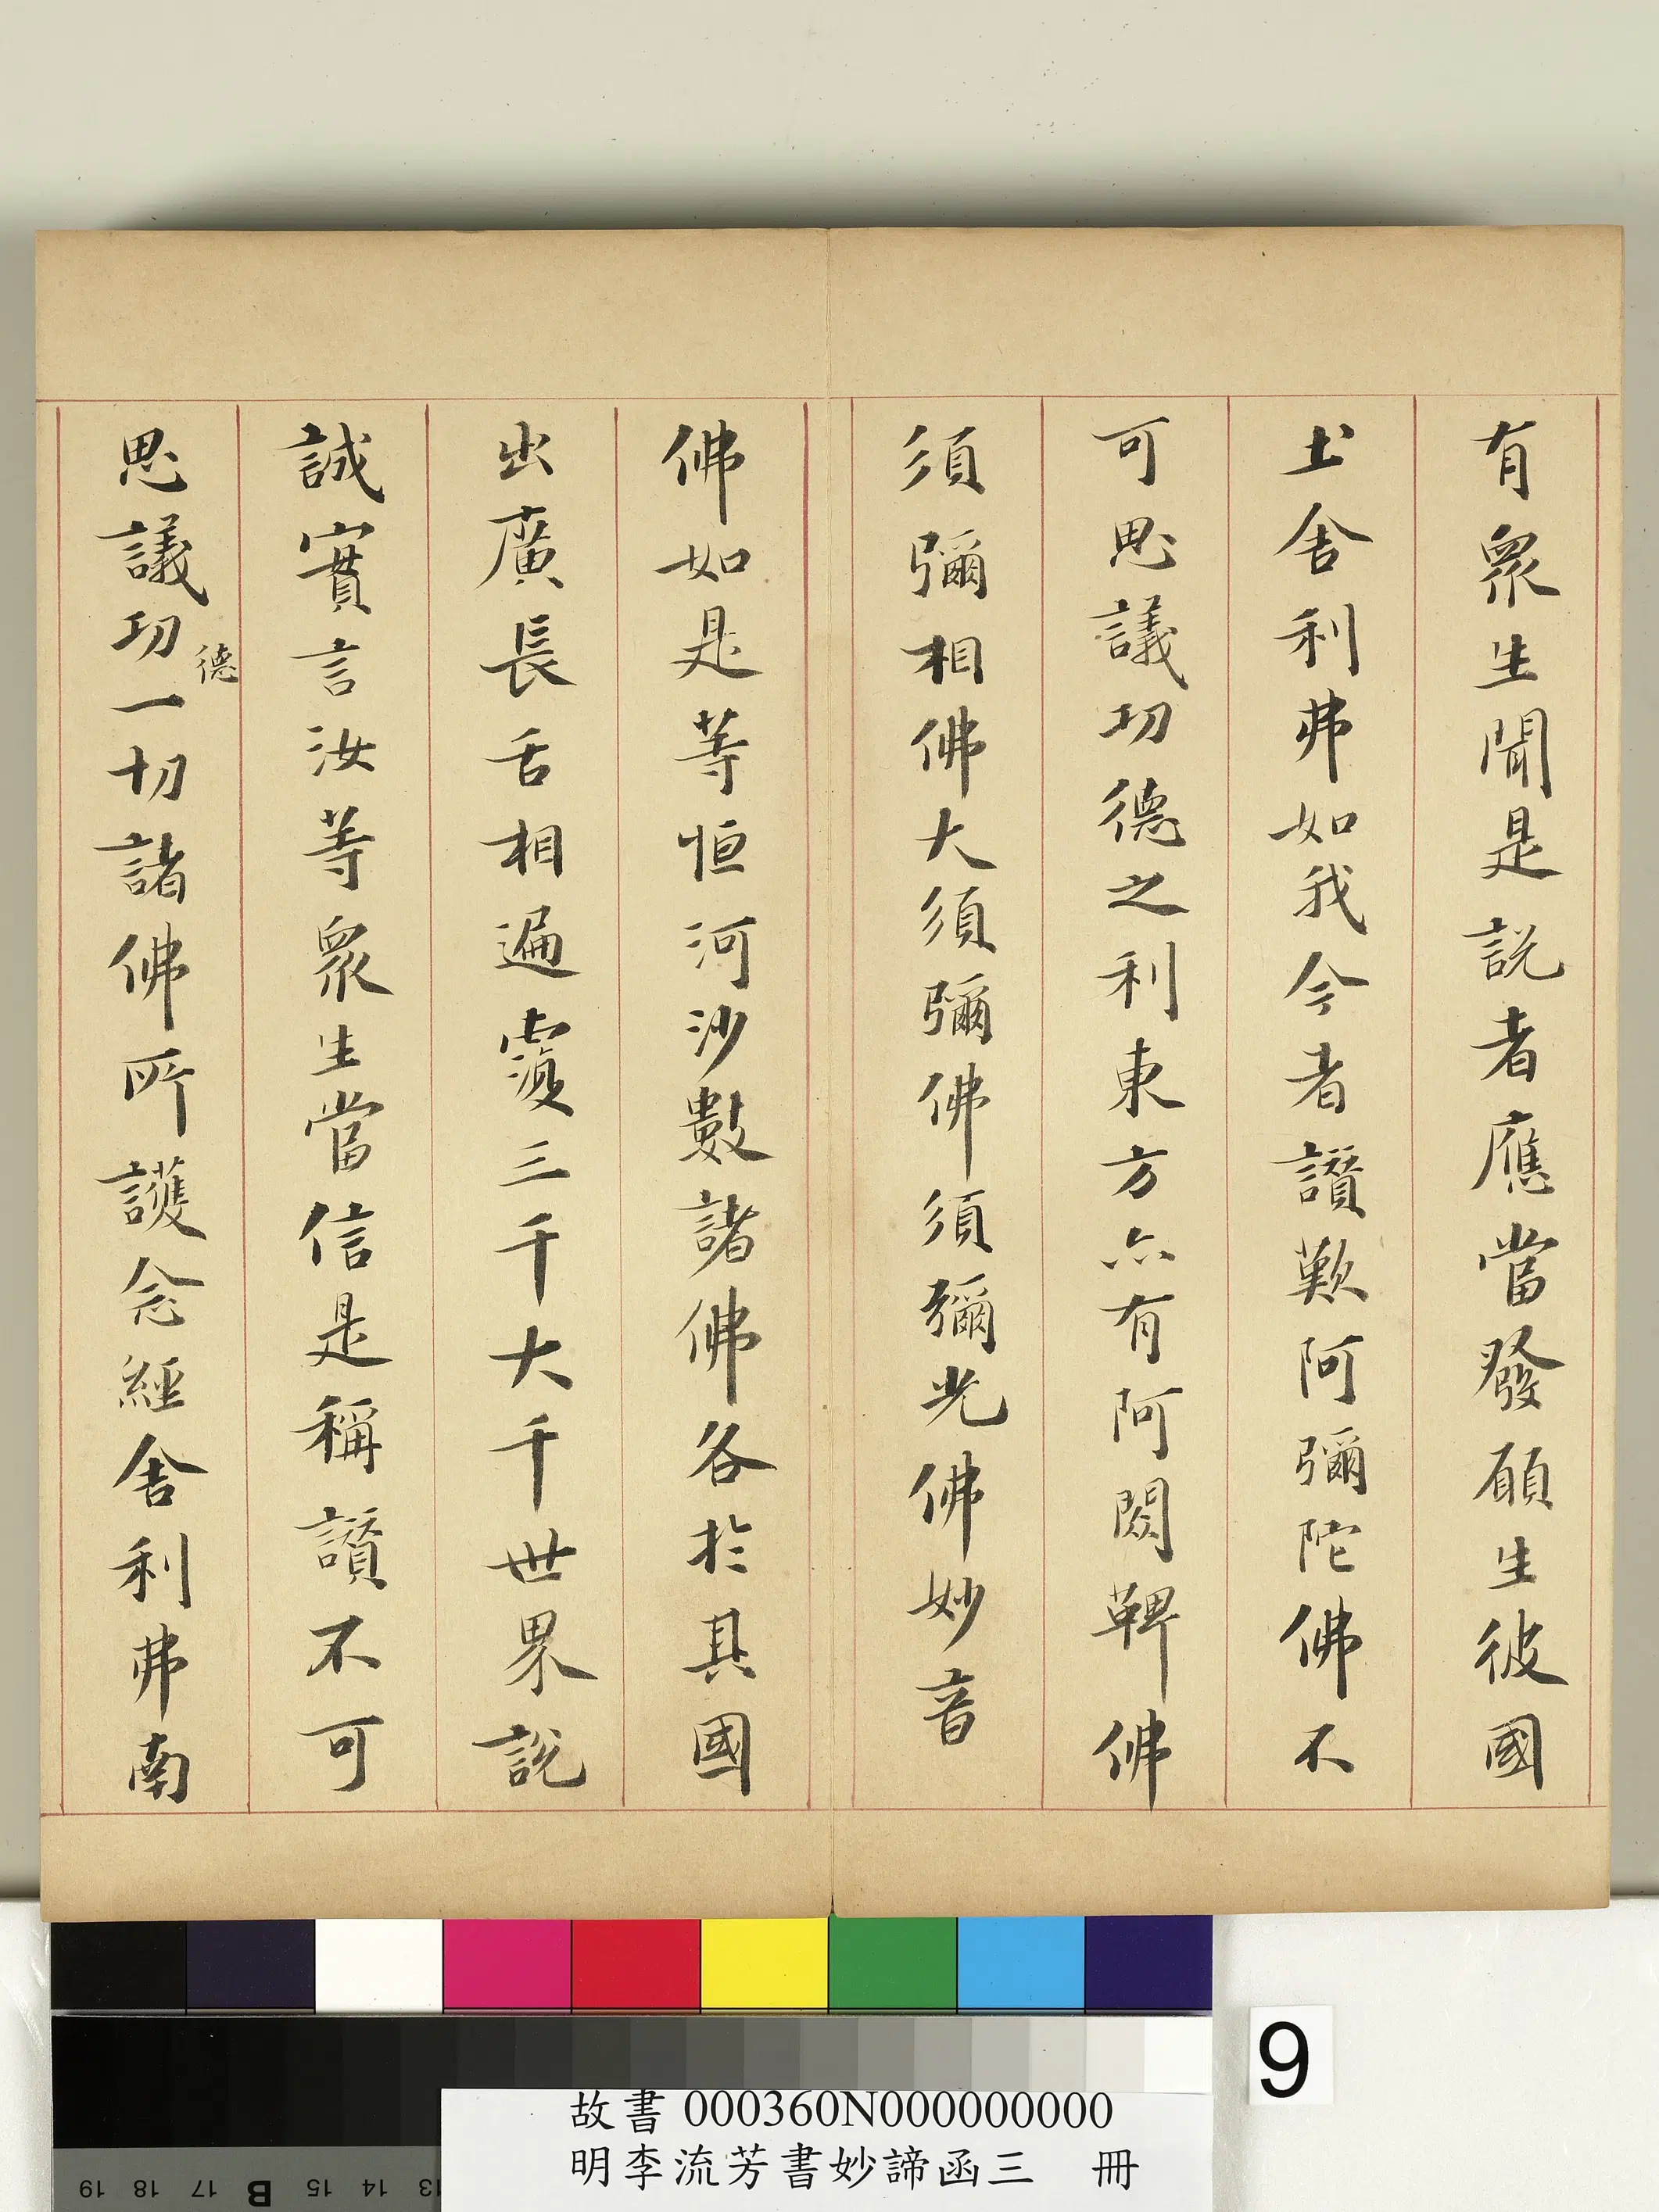 有衆生聞是説者應當發願生彼國
土舍利弗如我今者讚歎阿彌陀佛不
可思議功德之利東方亦有阿閦鞞佛
須彌相佛大須彌佛須彌光佛妙音
佛如是等恒河沙數諸佛各於其國
出廣長舌相遍覆三千大千世界説
誠實言汝等衆生當信是稱讚不可
思議功德一切諸佛所護念經舍利弗南
9
故書000360N000000000
明李流芳書妙諦函三 冊
19 18 17 B 15 14 13